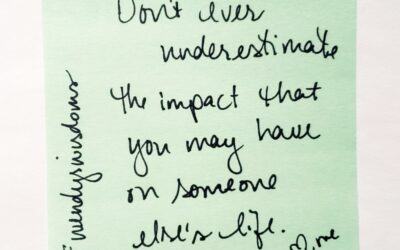 Don't ever
underestimate
the impact that
you may have
on someone
else's life.
wendyswisdoms